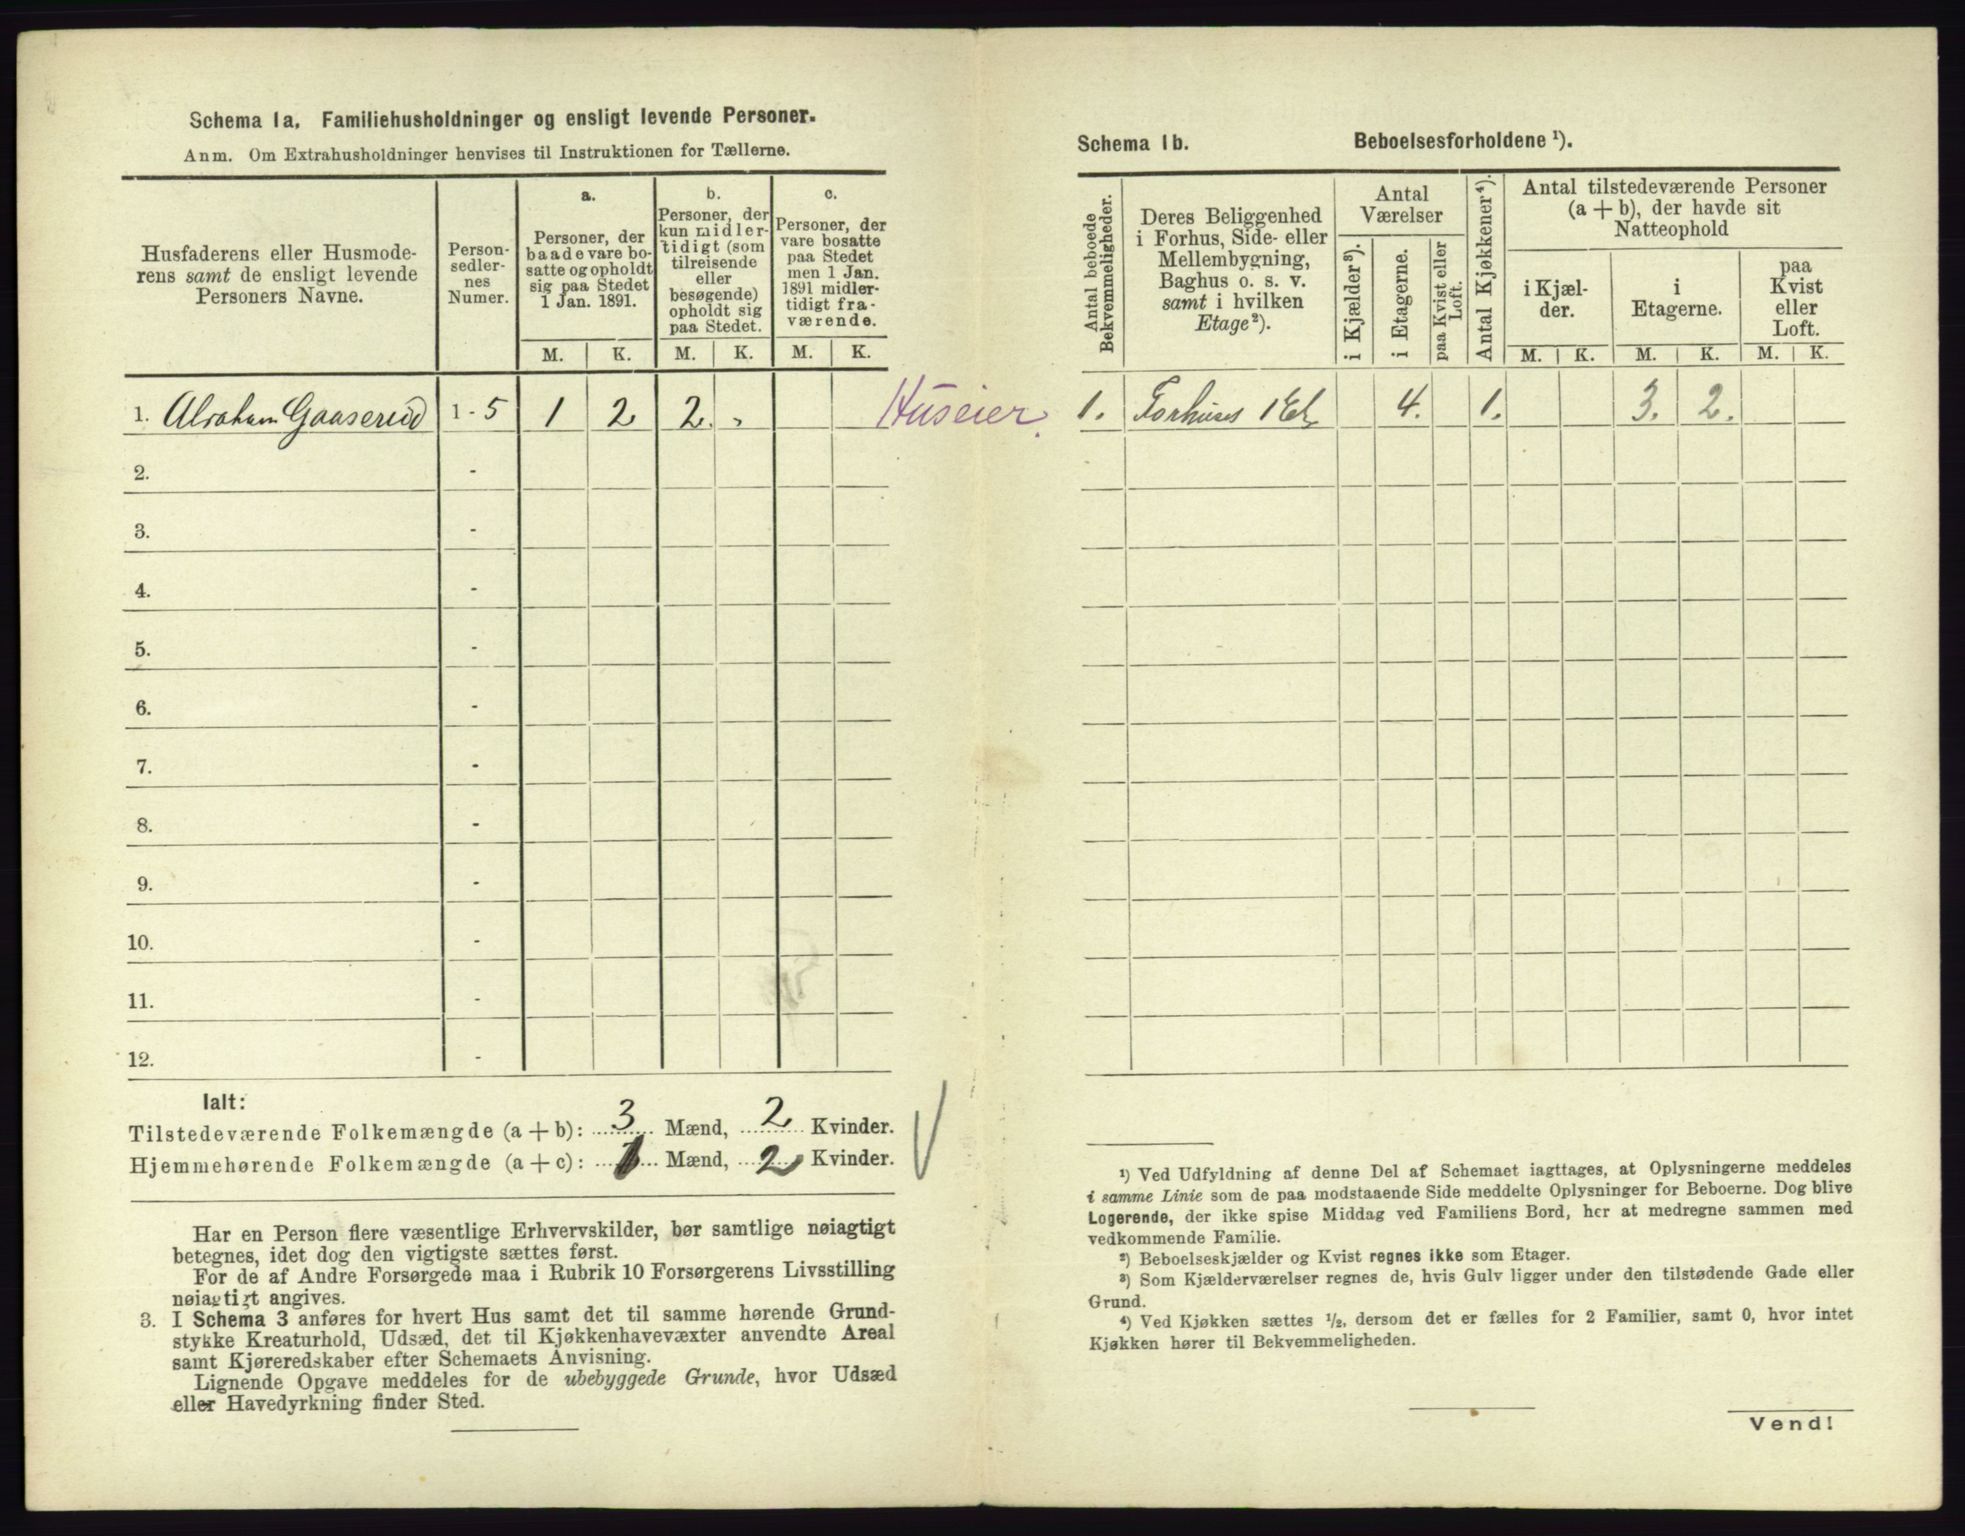 Schema 1a. Familiehusholdninger og ensligt levende Personer.
Anm. Om Extrahusholdninger henvises til Instruktionen for Tællerne.
Husfaderens eller Husmode-
rens samt de ensligt levende
Personers Navne.
Person-
sedler-
nes
Numer.
a.
Personer, der
baade vare bo-
satte og opholdt
sig paa Stedet
1 Jan. 1891.
M. K.
b.
Personer, der
kun midler-
tidigt (som
tilreisende
eller
besøgende)
opholdt sig
paa Stedet.
M. K.
c.
Personer, der
vare bosatte
paa Stedet
men 1 Jan.
1891 midler-
tidigt fra-
værende.
M. K.
1. Abraham Gaaserud 1 - 5 1 2 2. Huseier.
2. -
3. -
4. -
5. -
6. -
7. -
8. -
9. -
10. -
11. -
12. -
Ialt:
Tilstedeværende Folkemængde (a + b): 3 Mænd, 2 Kvinder.
Hjemmehørende Folkemængde (a + c): 1 Mænd, 2 Kvinder.
Har en Person flere væsentlige Erhvervskilder, bør samtlige nøiagtigt
betegnes, idet dog den vigtigste sættes først.
For de af Andre Forsørgede maa i Rubrik 10 Forsørgerens Livsstilling
nøiagtigt angives.
3. I Schema 3 anføres for hvert Hus samt det til samme hørende Grund-
stykke Kreaturhold, Udsæd, det til Kjøkkenhavevæxter anvendte Areal
samt Kjøreredskaber efter Schemaets Anvisning.
Lignende Opgave meddeles for de ubebyggede Grunde, hvor Udsæd
eller Havedyrkning finder Sted.
Schema 1b. Beboelsesforholdene ¹).
Antal beboede
Bekvemmeligheder.
Deres Beliggenhed
i Forhus, Side- eller
Mellembygning,
Baghus o. s. v.
samt i hvilken
Etage²).
Antal
Værelser
i Kjælder³).
i Etagerne.
paa Kvist eller
Loft.
Antal Kjøkkener⁴).
Antal tilstedeværende Personer
(a + b), der havde sit
Natteophold
i Kjæl-
der.
M. K.
i
Etagerne.
M. K.
paa
Kvist
eller
Loft.
M. K.
1. Forhuset 1 Et. 4. 1. 3. 2.
¹) Ved Udfyldning af denne Del af Schemaet iagttages, at Oplysningerne meddeles
i samme Linie som de paa modstaaende Side meddelte Oplysninger for Beboerne. Dog blive
Logerende, der ikke spise Middag ved Familiens Bord, her at medregne sammen med
vedkommende Familie.
²) Beboelseskjælder og Kvist regnes ikke som Etager.
³) Som Kjælderværelser regnes de, hvis Gulv ligger under den tilstødende Gade eller
Grund.
⁴) Ved Kjøkken sættes ½, dersom det er fælles for 2 Familier, samt 0, hvor intet
Kjøkken hører til Bekvemmeligheden.
Vend!